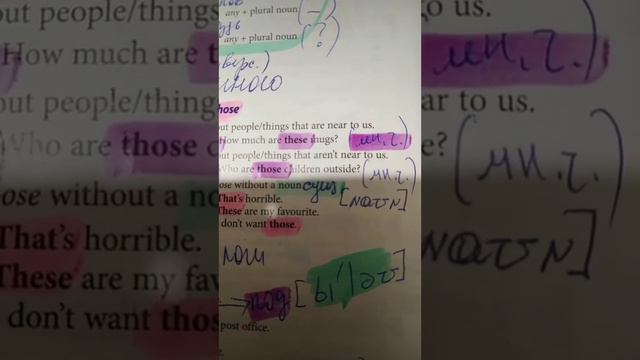 any + plural noun (–)
any + plural noun (?)
hose
out people/things that are near to us.
How much are these mugs? (мн.ч.)
out people/things that aren't near to us.
Who are those children outside? (мн.ч.)
ose without a noun сущ [naʊn]
That's horrible.
These are my favourite.
don't want those.
⇒ под [bɪ'ləʊ]
post office.